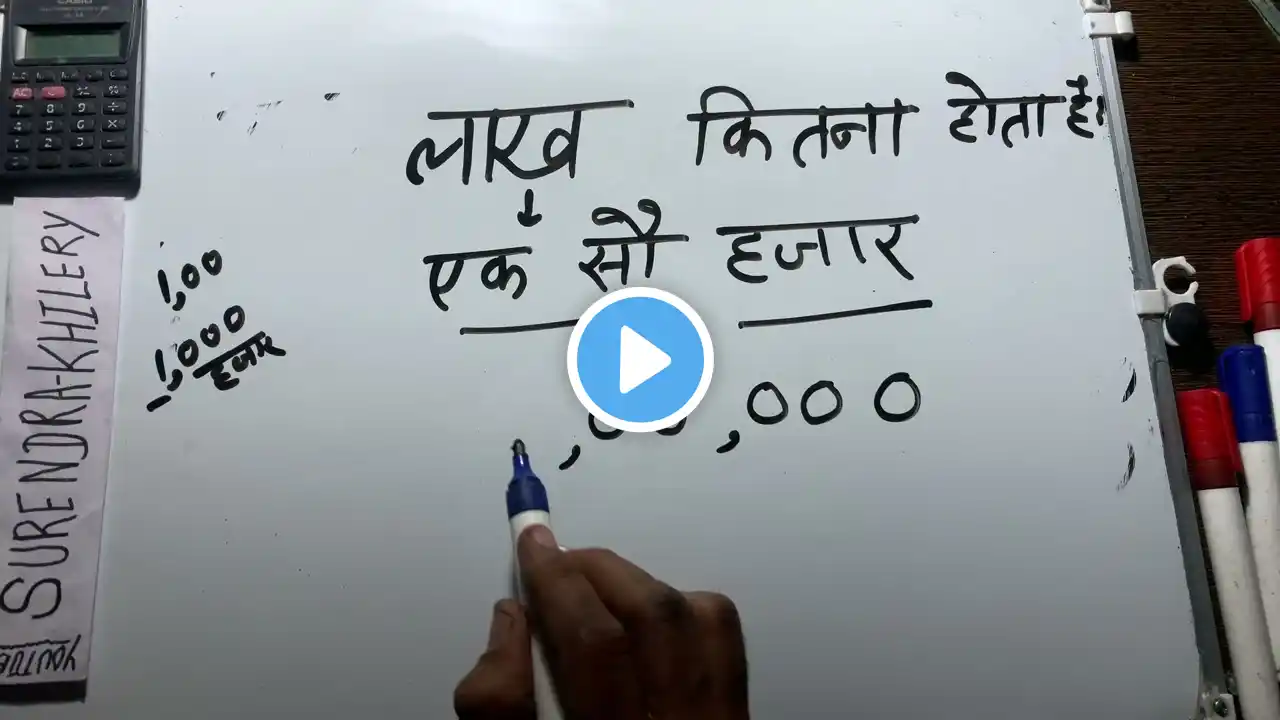 लाख कितना होता है।
एक सौ हजार
1,00
1,000
हजार
,00,000
SURENDRA-KHILERY
YOUTUBE
CASIO
AC
7 8 9 ÷
4 5 6 ×
1 2 3